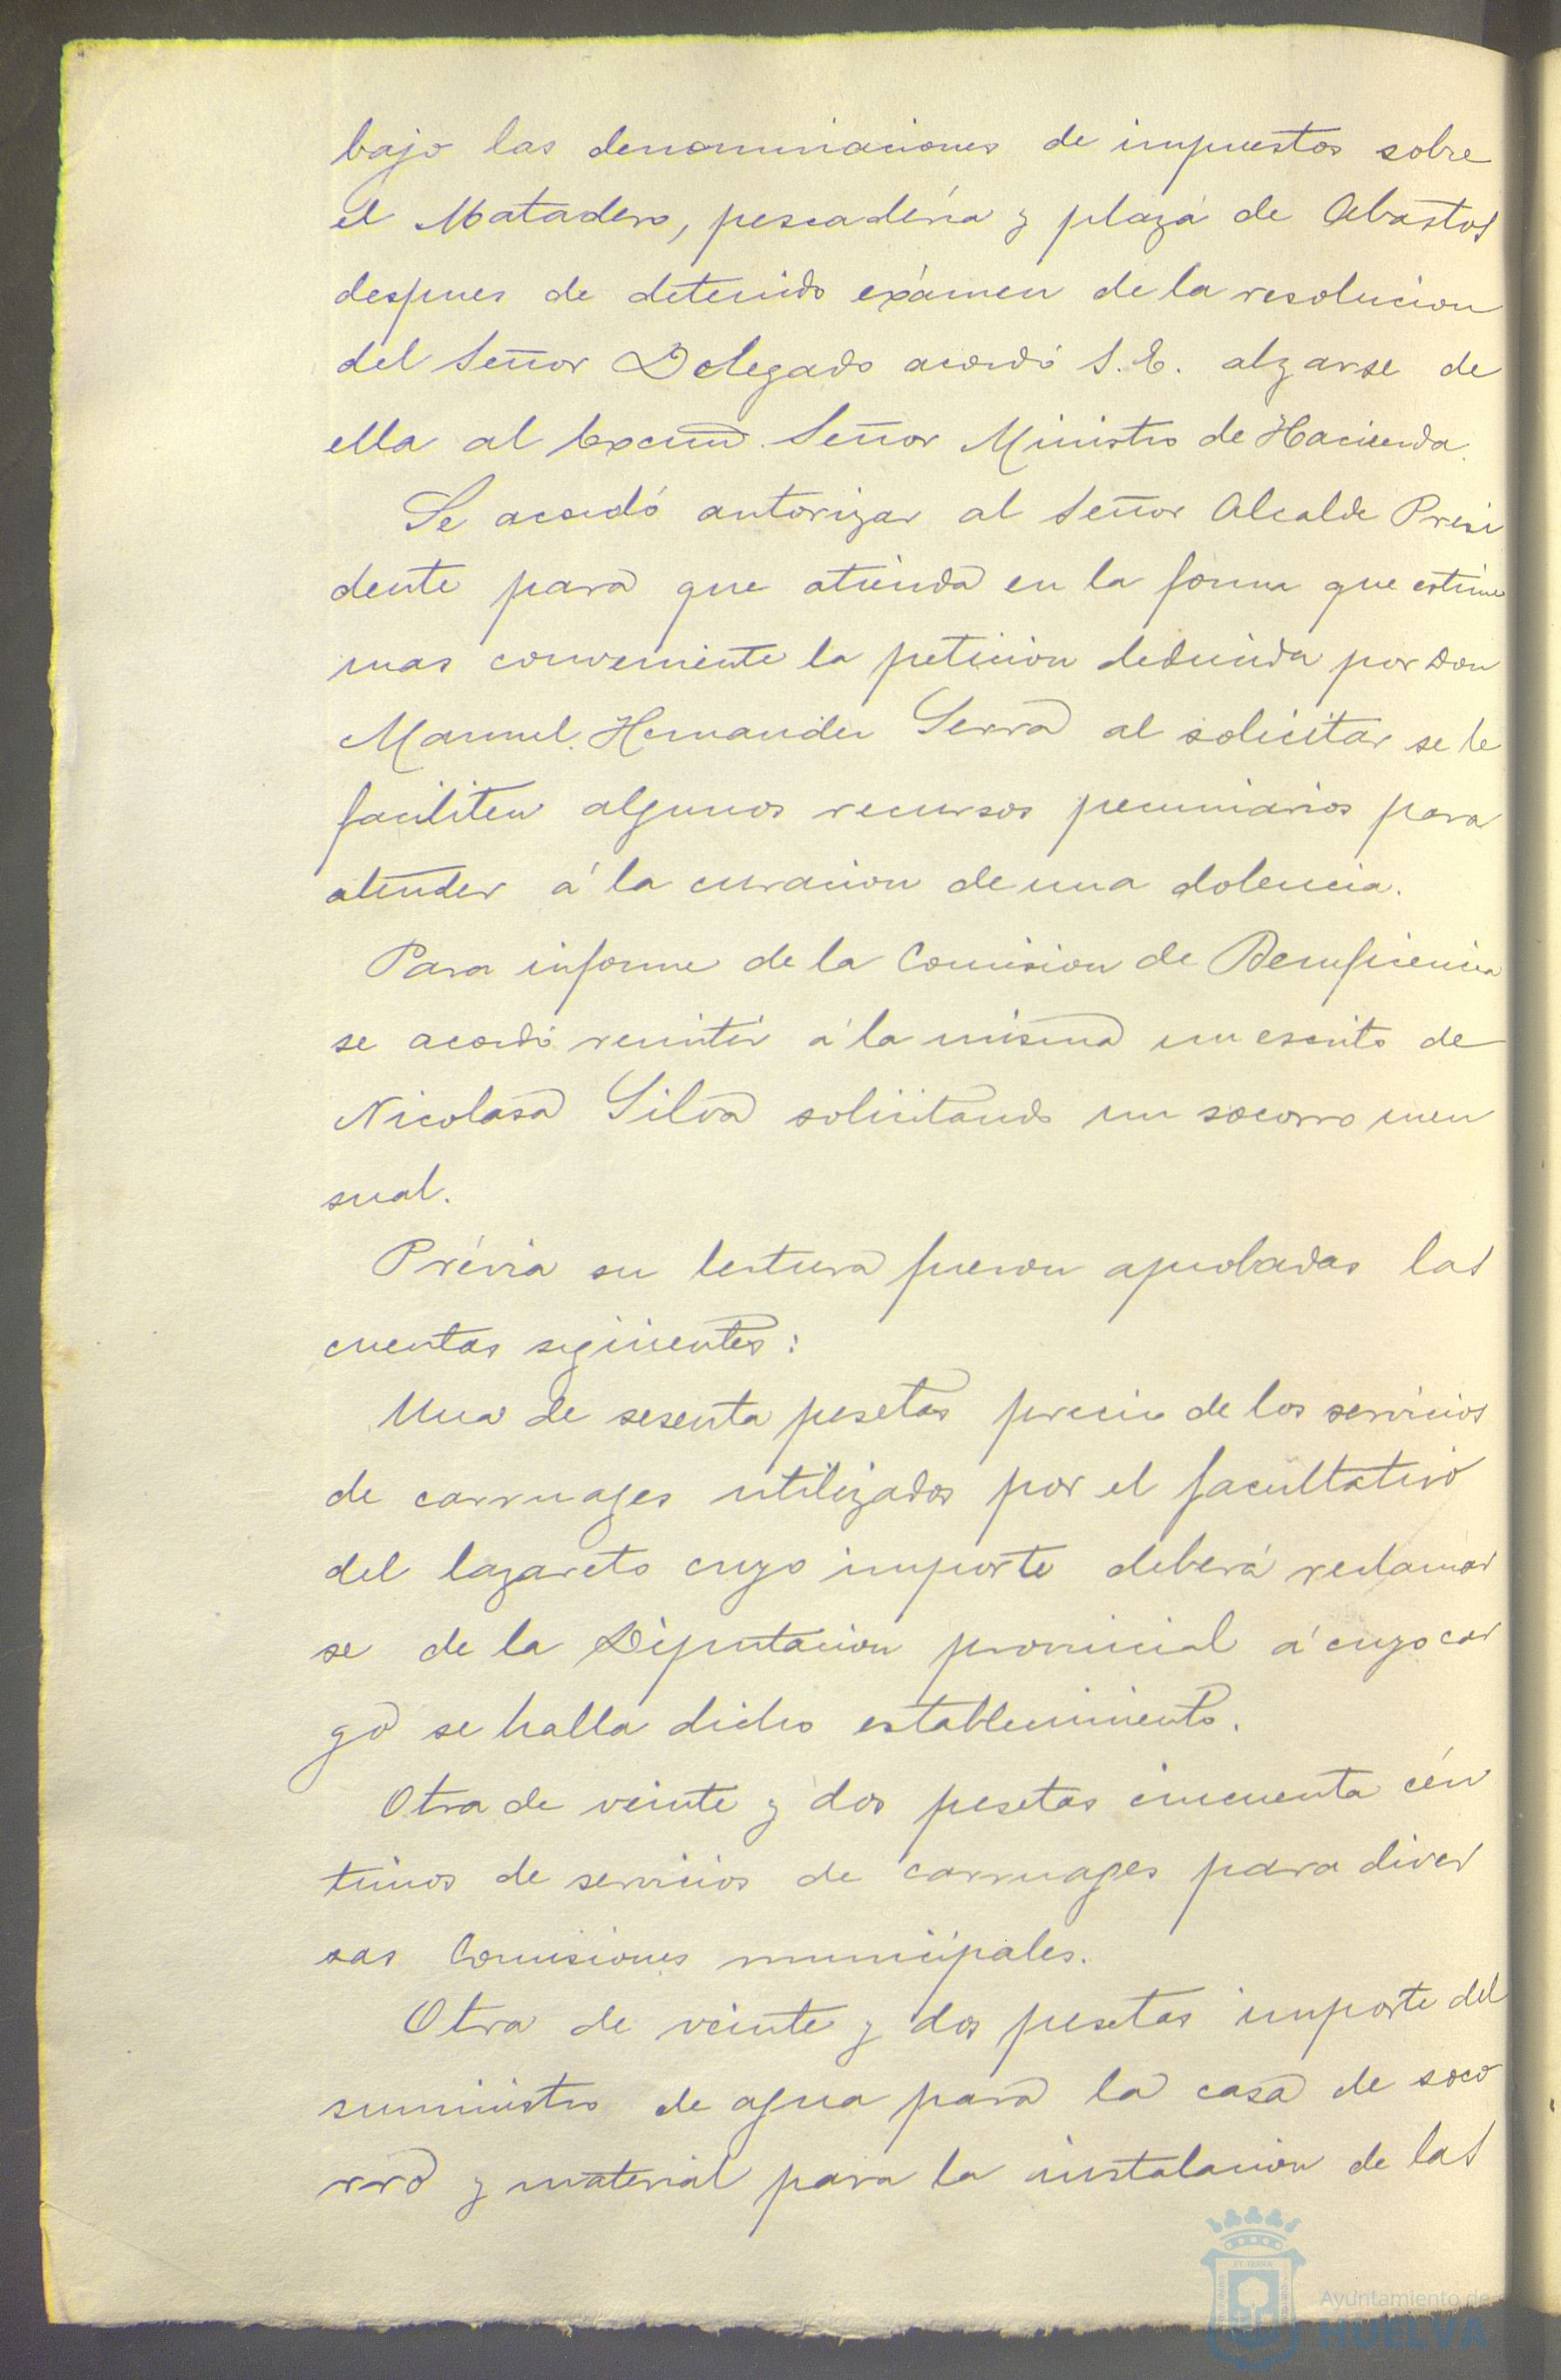 bajo las denominaciones de impuestos sobre
el Matadero, pescadería y plaza de Abastos
despues de detenido exámen de la resolucion
del Señor Delegado acordó S. E. alzarse de
ella al Excmo. Señor Ministro de Hacienda.
Se acordó autorizar al Señor Alcalde Presi
dente para que atienda en la forma que estime
mas conveniente la peticion deducida por Don
Manuel Hernandez Serra al solicitar se le
faciliten algunos recursos pecuniarios para
atender á la curacion de una dolencia.
Para informe de la Comision de Beneficencia
se acordó remitir á la misma un escrito de
Nicolasa Silva solicitando un socorro men
sual.
Prévia su lectura fueron aprobadas las
cuentas siguientes:
Una de sesenta pesetas precio de los servicios
de carruages utilizados por el facultativo
del lazareto cuyo importe deberá reclamar
se de la Diputacion provincial á cuyo car
go se halla dicho establecimiento.
Otra de veinte y dos pesetas cincuenta cén
timos de servicios de carruages para diver
sas Comisiones municipales.
Otra de veinte y dos pesetas importe del
suministro de agua para la casa de soco
rro y material para la instalacion de las
Ayuntamiento de
HUELVA